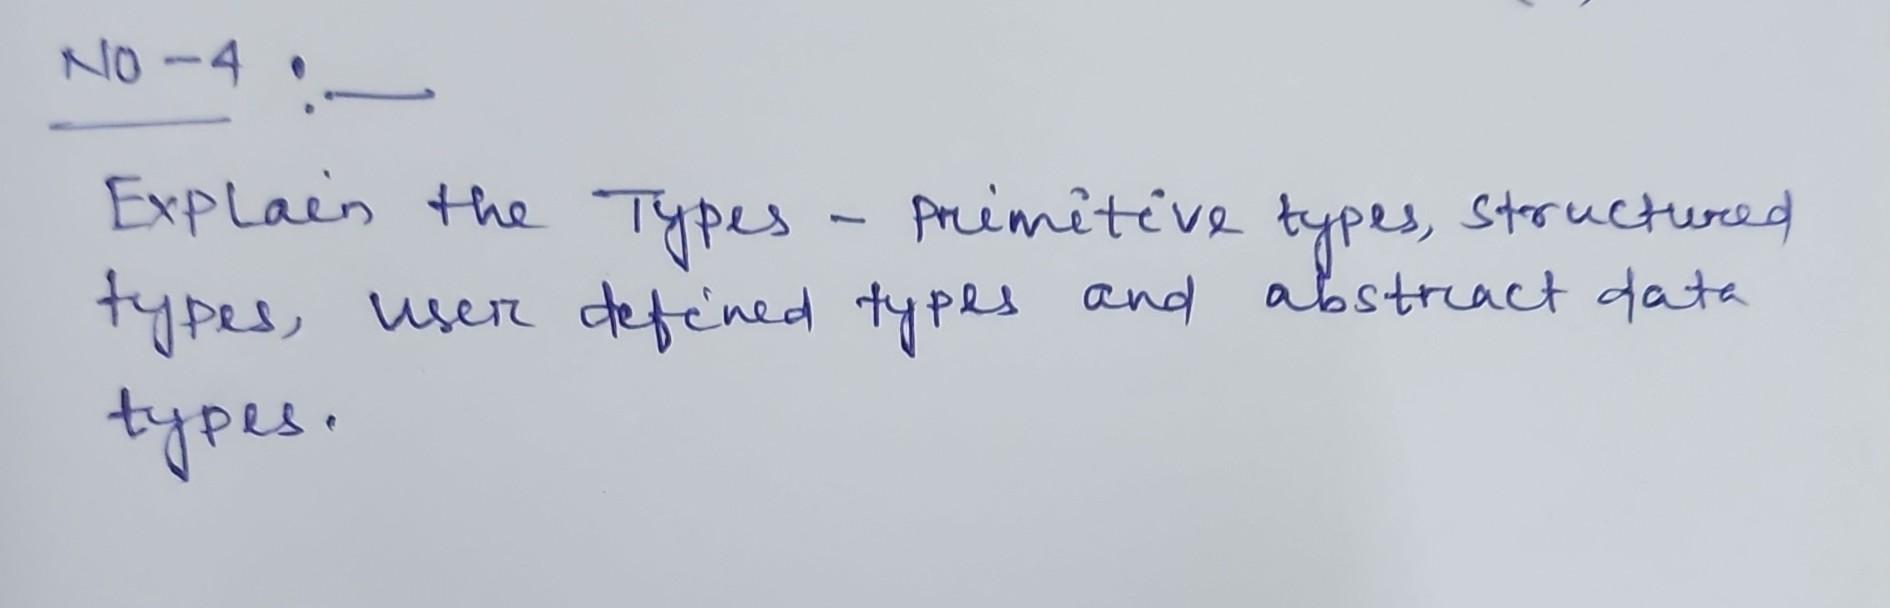 No-4 :-
Explain the Types - primitive types, structured
types, user defined types and abstract data
types.